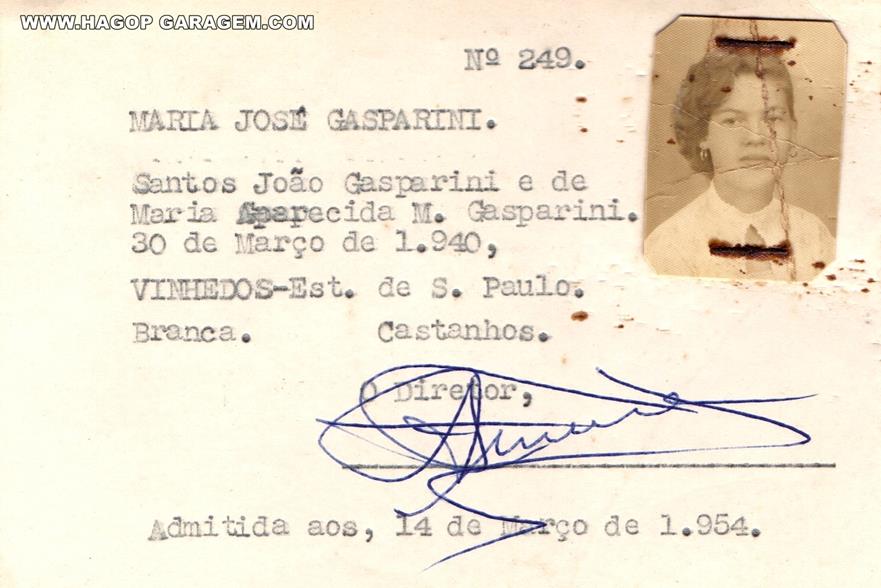 WWW.HAGOP GARAGEM.COM
Nº 249.
MARIA JOSÉ GASPARINI.
Santos João Gasparini e de
Maria Aparecida M. Gasparini.
30 de Março de 1.940,
VINHEDOS-Est. de S. Paulo.
Branca. Castanhos.
O Diretor,
Admitida aos, 14 de Março de 1.954.